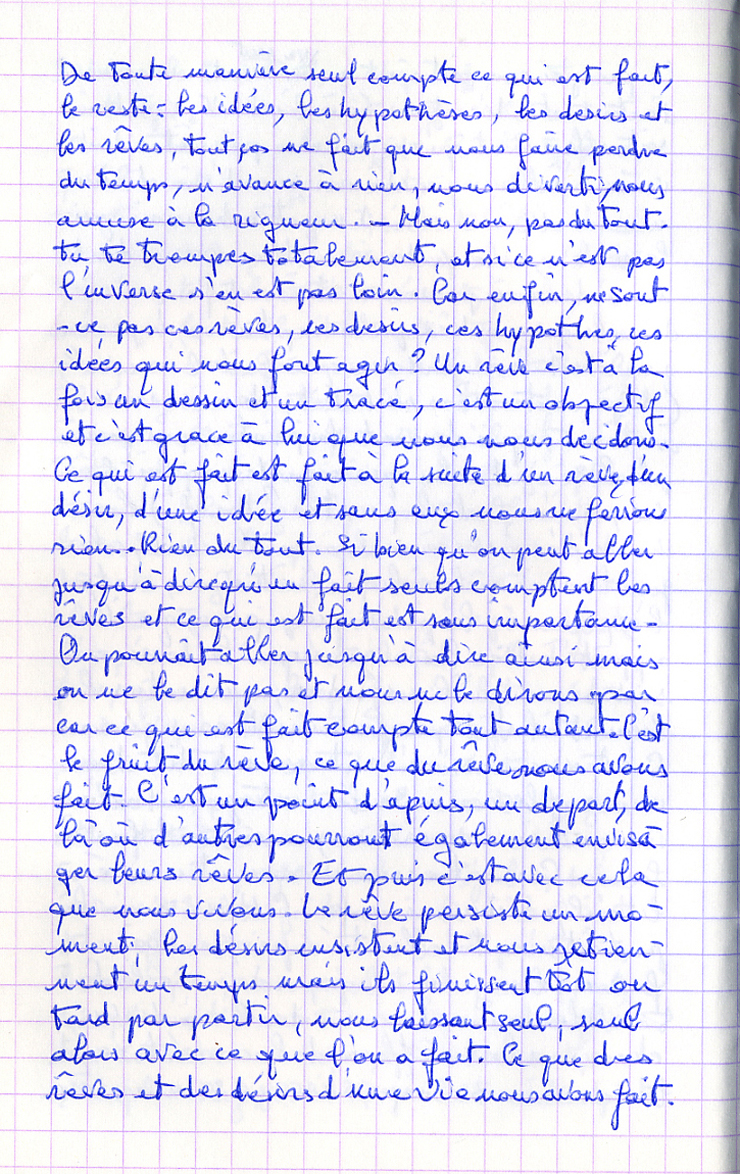 De toute manière seul compte ce qui est fait,
le reste : les idées, les hypothèses, les desirs et
les rêves, tout ça ne fait que nous faire perdre
du temps, n'avance à rien, nous diverti, nous
amuse à la rigueur. – Mais non, pas du tout.
tu te trompes totalement, et si ce n'est pas
l'inverse s'en est pas loin. Car enfin, ne sont
-ce pas ces rêves, ces desirs, ces hypothes, ces
idées qui nous font agir ? Un rêve c'est à la
fois un dessin et un tracé, c'est un objectif
et c'est grace à lui que nous nous decidons.
Ce qui est fait est fait à la suite d'un rêve, d'un
désir, d'une idée et sans eux nous ne ferions
rien.. Rien du tout. Si bien qu'on peut aller
jusqu'à dire qu'en fait seuls comptent les
rêves et ce qui est fait est sans importance -
On pourrait aller jusqu'à dire ainsi mais
on ne le dit pas et nous ne le dirons pas
car ce qui est fait compte tout autant. C'est
le fruit du rêve, ce que du rêve nous avons
fait. C'est un point d'apuis, un depart, de
là où d'autres pourront également envisa
ger leurs rêves. Et puis c'est avec cela
que nous vivons. Le rêve persiste un mo-
ment, les désirs insistent et nous retien-
nent un temps mais ils finissent tôt ou
tard par partir, nous laissant seul, seul
alors avec ce que l'on a fait. Ce que des
rêves et des désirs d'une vie nous avons fait.